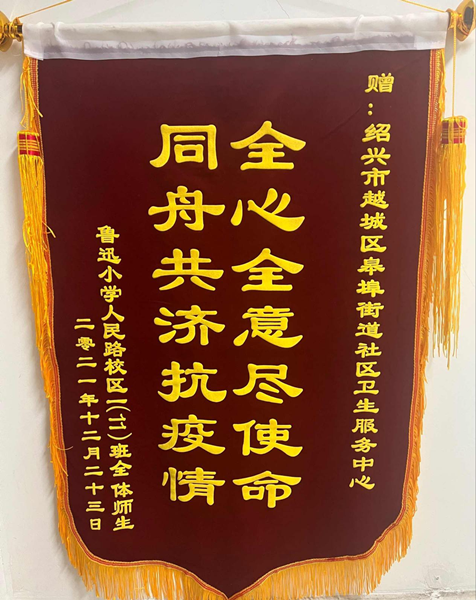 赠：绍兴市越城区皋埠街道社区卫生服务中心
全心全意尽使命
同舟共济抗疫情
鲁迅小学人民路校区一(11)班全体师生
二零二一年十二月二十三日